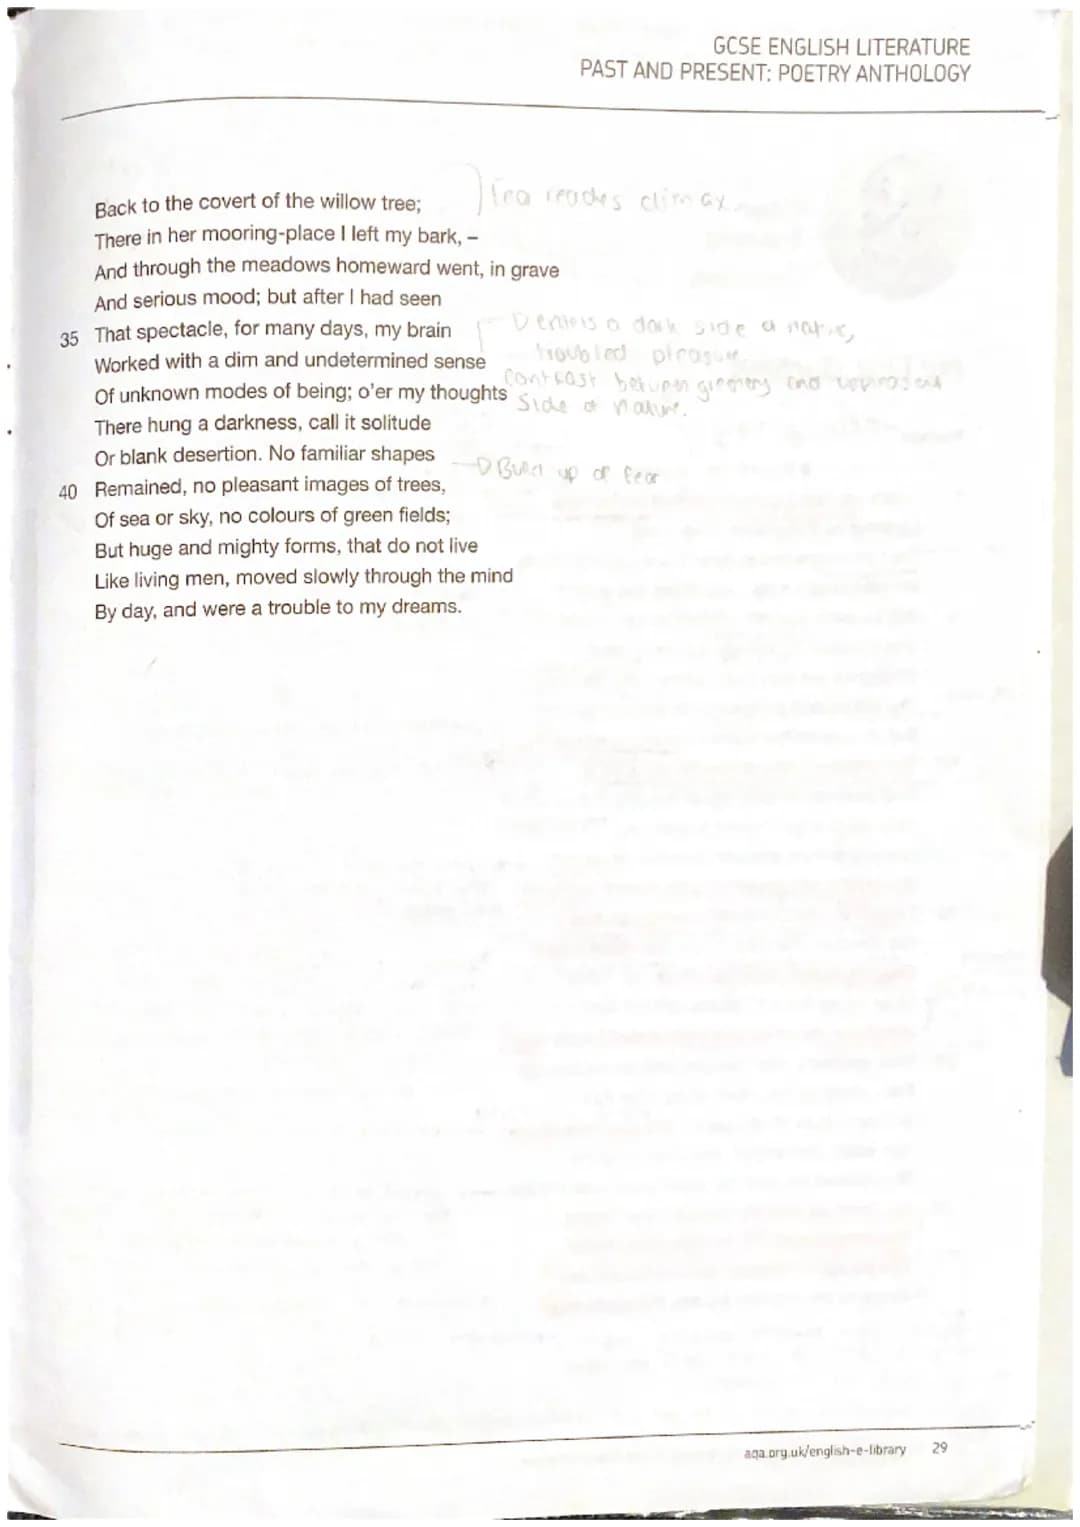 GCSE ENGLISH LITERATURE
PAST AND PRESENT: POETRY ANTHOLOGY
Back to the covert of the willow tree;
reaches climax.
There in her mooring-place I left my bark, –
And through the meadows homeward went, in grave
And serious mood; but after I had seen
35 That spectacle, for many days, my brain
a dark side
troubled pleasure
Worked with a dim and undetermined sense
Contrast between and
Of unknown modes of being; o'er my thoughts
Side of nature.
There hung a darkness, call it solitude
Or blank desertion. No familiar shapes
Build up of fear
40 Remained, no pleasant images of trees,
Of sea or sky, no colours of green fields;
But huge and mighty forms, that do not live
Like living men, moved slowly through the mind
By day, and were a trouble to my dreams.
aqa.org.uk/english-e-library 29